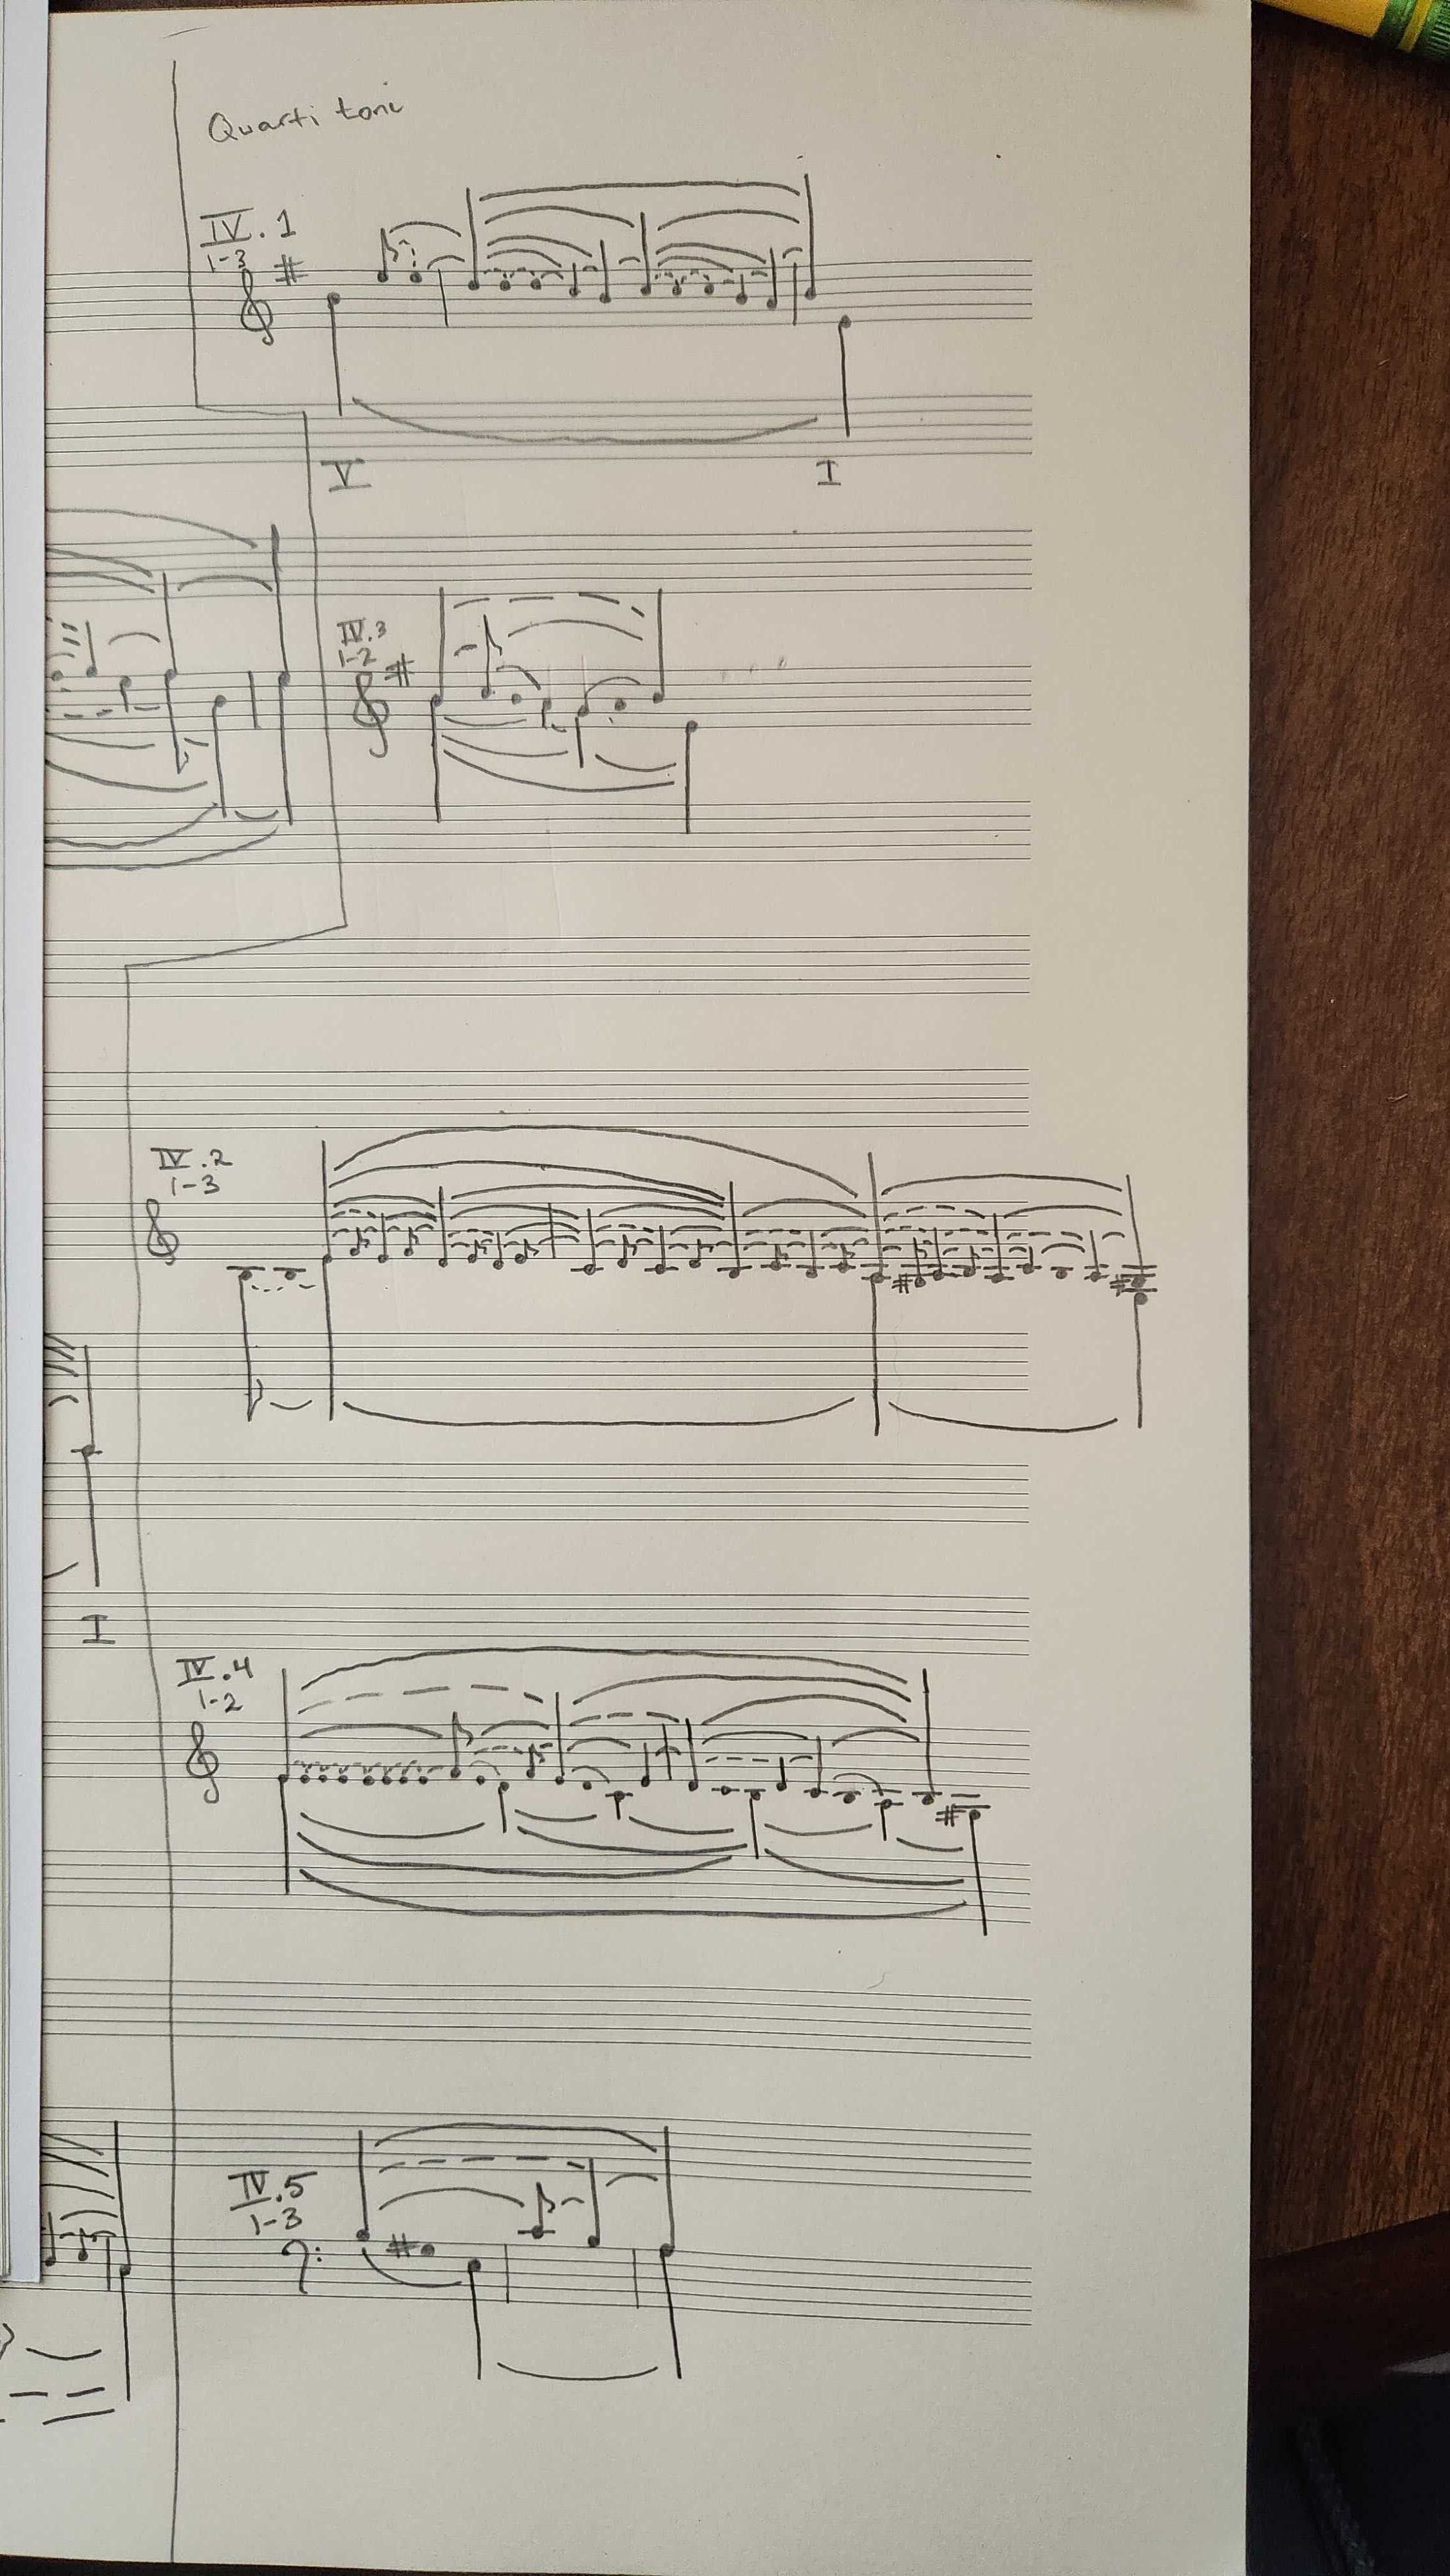 Quarti toni
IV.1
1-3
V I
IV.3
1-2
IV.2
1-3
I
IV.4
1-2
IV.5
1-3